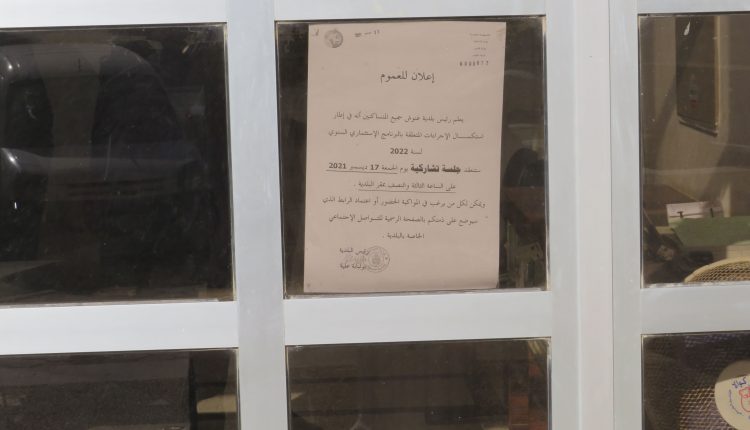 إعلان للعموم
يعلم رئيس بلدية غنوش جميع المتساكنين أنه في إطار
استكمال الإجراءات المتعلقة بالبرنامج الإستثماري السنوي
لسنة 2022
ستنعقد جلسة تشاركية يوم الجمعة 17 ديسمبر 2021
على الساعة الثالثة والنصف بمقر البلدية .
ويمكن لكل من يرغب في المواكبة الحضور أو اعتماد الرابط الذي
سيوضع على ذمتكم بالصفحة الرسمية للتواصل الإجتماعي
الخاصة بالبلدية .
رئيس البلدية